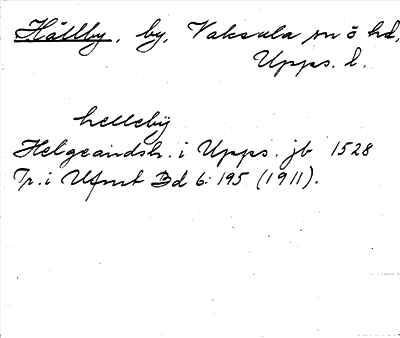 Hällby, by, Vaksala sn o hd,
Upps. l.
helleby
Helgeandsh. i Upps. jb 1528
Tr. i Ufmt Bd 6: 195 (1911).